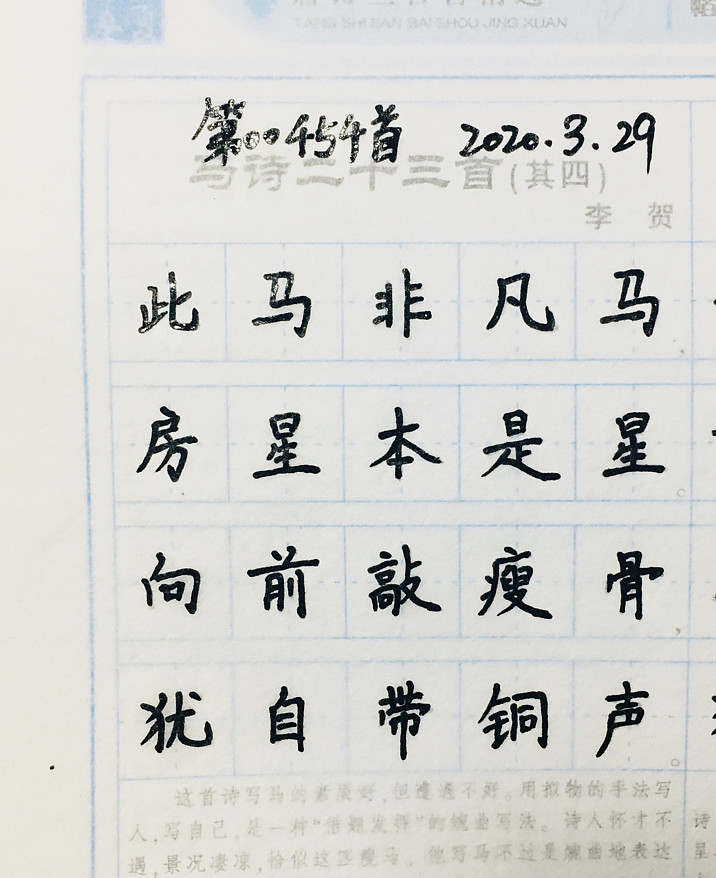 TANG SHI SAN BAI SHOU JING XUAN
第00454首 2020.3.29
马诗二十三首(其四)
李贺
此马非凡马，
房星本是星。
向前敲瘦骨，
犹自带铜声。
这首诗写马的素质好，但遭遇不好。用拟物的手法写
人，写自己，是一种“借题发挥”的婉曲写法。诗人怀才不
遇，景况凄凉，恰似这匹瘦马。他写马不过是婉曲地表达
诗